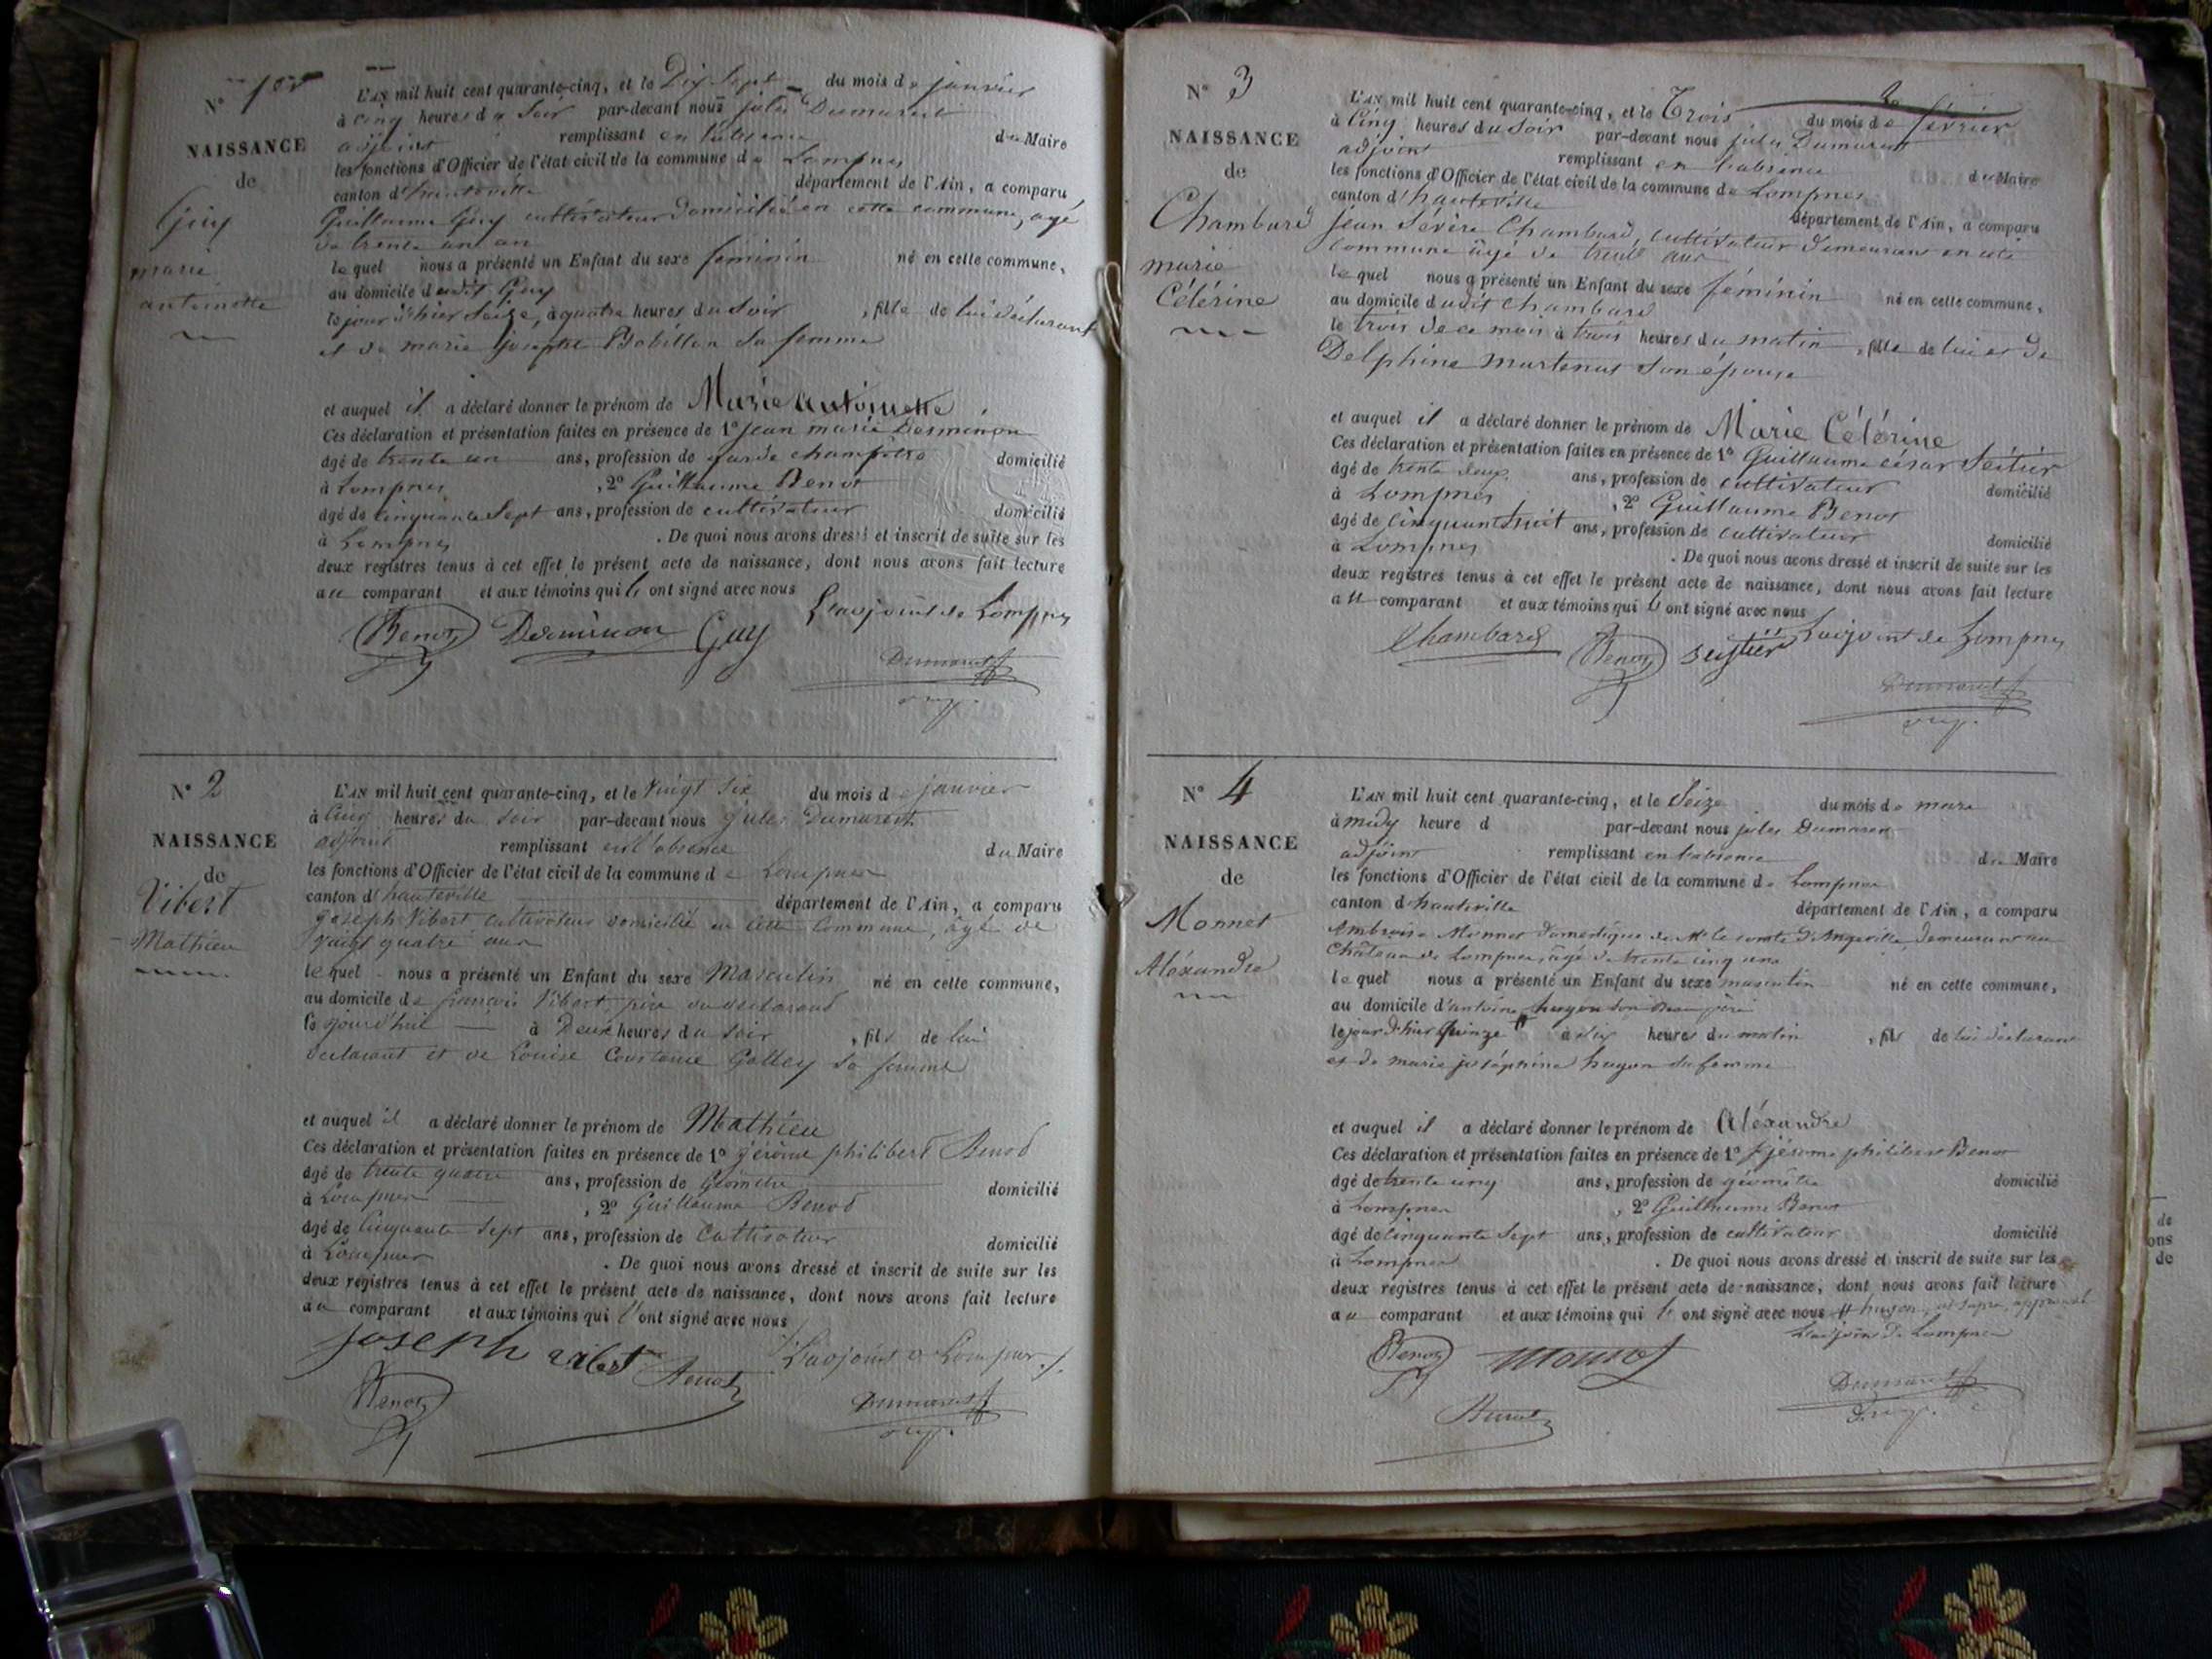 N° 1er
NAISSANCE
de
Guy
marie
antoinette
L'AN mil huit cent quarante-cinq, et le Dix Sept du mois de janvier
à cinq heures du Soir par-devant nous jules Dumarest
adjoint remplissant en l'absence du Maire
les fonctions d'Officier de l'état civil de la commune de Lompnes
canton d'hauteville département de l'Ain, a comparu
Guillaume Guy cultivateur domicilié en cette commune, agé
de trente un an
lequel nous a présenté un Enfant du sexe féminin né en cette commune,
au domicile dudit Guy
le jour d'hier Seize, à quatre heures du Soir, fille de lui déclarant
et de marie josephte Bobillon sa femme
et auquel il a déclaré donner le prénom de Marie Antoinette
Ces déclaration et présentation faites en présence de 1° jean marie Derminon
âgé de trente un ans, profession de garde champêtre domicilié
à Lompnes, 2° Guillaume Benot
âgé de cinquante Sept ans, profession de cultivateur domicilié
à Lompnes. De quoi nous avons dressé et inscrit de suite sur les
deux registres tenus à cet effet le présent acte de naissance, dont nous avons fait lecture
au comparant et aux témoins qui l' ont signé avec nous
L'adjoint de Lompnes
Benot Derminon Guy
Dumarest
N° 2
NAISSANCE
de
Vibert
Mathieu
L'AN mil huit cent quarante-cinq, et le Vingt Six du mois de janvier
à Cinq heures du Soir par-devant nous jules Dumarest
adjoint remplissant en l'absence du Maire
les fonctions d'Officier de l'état civil de la commune de Lompnes
canton d'hauteville département de l'Ain, a comparu
joseph Vibert cultivateur domicilié en cette Commune, âgé de
Vingt quatre ans
lequel nous a présenté un Enfant du sexe Masculin né en cette commune,
au domicile de françois Vibert, père du déclarant
le jourd'hui à Deux heures du Soir, fils de lui
déclarant et de Louise Constance Golley sa femme
et auquel il a déclaré donner le prénom de Mathieu
Ces déclaration et présentation faites en présence de 1° jérôme philibert Benod
âgé de trente quatre ans, profession de Géomètre domicilié
à Lompnes, 2° Guillaume Benod
âgé de Cinquante Sept ans, profession de Cultivateur domicilié
à Lompnes. De quoi nous avons dressé et inscrit de suite sur les
deux registres tenus à cet effet le présent acte de naissance, dont nous avons fait lecture
au comparant et aux témoins qui l' ont signé avec nous
joseph vibert Benot L'adjoint de Lompnes
Benot Dumarest
2
N° 3
NAISSANCE
de
Chambard
marie
Célérine
L'AN mil huit cent quarante-cinq, et le Trois du mois de février
à Cinq heures du Soir par-devant nous jules Dumarest
adjoint remplissant en l'absence du Maire
les fonctions d'Officier de l'état civil de la commune de Lompnes
canton d'hauteville département de l'Ain, a comparu
jean Sévère Chambard, cultivateur demeurant en cette
commune âgé de trente ans
lequel nous a présenté un Enfant du sexe féminin né en cette commune,
au domicile dudit Chambard
le trois de ce mois à trois heures du matin, fille de lui et de
Delphine martenat son épouse
et auquel il a déclaré donner le prénom de Marie Célérine
Ces déclaration et présentation faites en présence de 1° Guillaume césar Seitier
âgé de trente deux ans, profession de cultivateur domicilié
à Lompnes, 2° Guillaume Benot
âgé de Cinquante huit ans, profession de cultivateur domicilié
à Lompnes. De quoi nous avons dressé et inscrit de suite sur les
deux registres tenus à cet effet le présent acte de naissance, dont nous avons fait lecture
au comparant et aux témoins qui l' ont signé avec nous
L'adjoint de Lompnes
Chambard Benot
Dumarest
N° 4
NAISSANCE
de
Monnet
Aléxandre
L'AN mil huit cent quarante-cinq, et le Seize du mois de mars
à midy heure d par-devant nous jules Dumarest
adjoint remplissant en l'absence du Maire
les fonctions d'Officier de l'état civil de la commune de Lompnes
canton d'hauteville département de l'Ain, a comparu
Ambroise Monnet domestique de Mr le comte d'Angeville demeurant au
Château de Lompnes, âgé de trente cinq ans
lequel nous a présenté un Enfant du sexe masculin né en cette commune,
au domicile d'antoine hugon son beau père
le jour d'hier Quinze à dix heures du matin, fils de lui déclarant
et de marie joséphine hugon sa femme
et auquel il a déclaré donner le prénom de Aléxandre
Ces déclaration et présentation faites en présence de 1° jérome philibert Benot
âgé de trente cinq ans, profession de géomètre domicilié
à Lompnes, 2° Guillaume Benot
âgé de cinquante Sept ans, profession de cultivateur domicilié
à Lompnes. De quoi nous avons dressé et inscrit de suite sur les
deux registres tenus à cet effet le présent acte de naissance, dont nous avons fait lecture
au comparant et aux témoins qui l' ont signé avec nous # hugon
L'adjoint de Lompnes
Benot Monnet
Benot Dumarest
de
ons
de